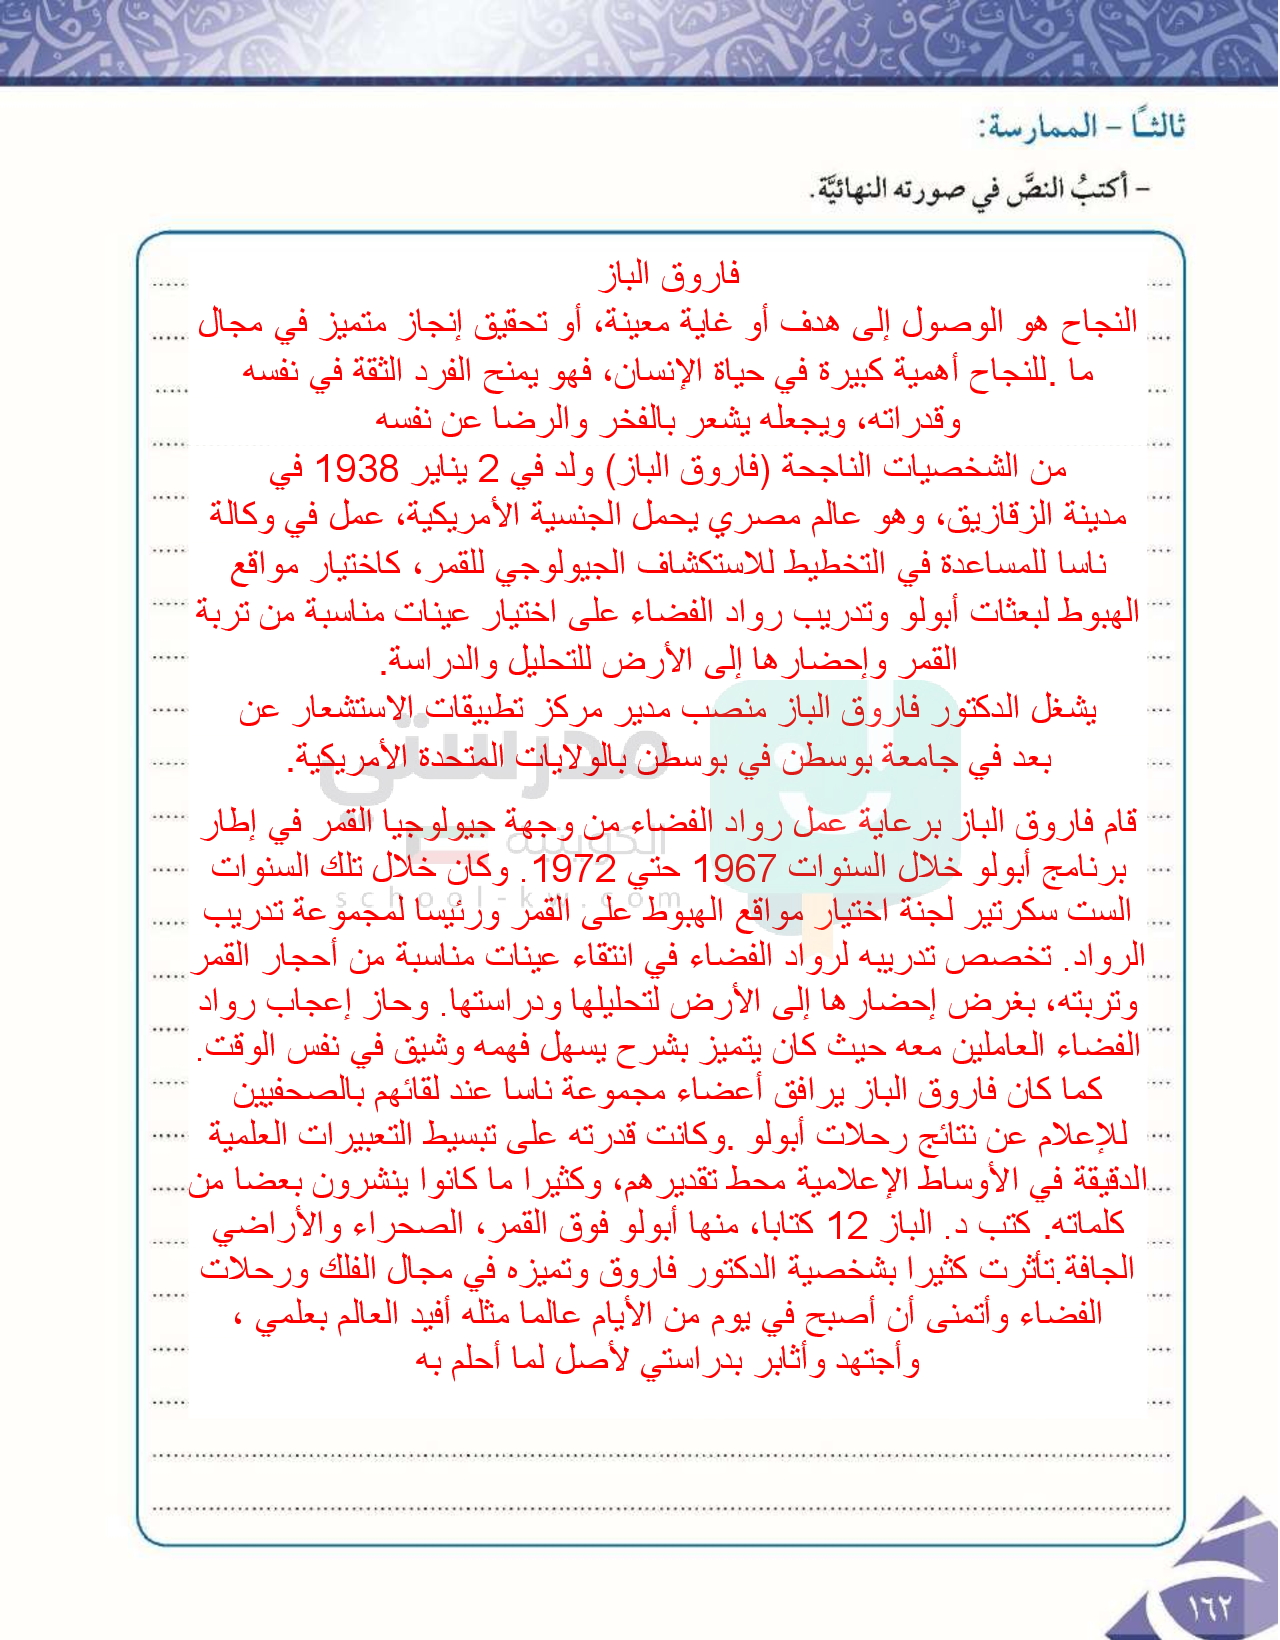 ثالثًا - الممارسة:
- أكتبُ النصَّ في صورته النهائيَّة.
فاروق الباز
النجاح هو الوصول إلى هدف أو غاية معينة، أو تحقيق إنجاز متميز في مجال
ما .للنجاح أهمية كبيرة في حياة الإنسان، فهو يمنح الفرد الثقة في نفسه
وقدراته، ويجعله يشعر بالفخر والرضا عن نفسه
من الشخصيات الناجحة (فاروق الباز) ولد في 2 يناير 1938 في
مدينة الزقازيق، وهو عالم مصري يحمل الجنسية الأمريكية، عمل في وكالة
ناسا للمساعدة في التخطيط للاستكشاف الجيولوجي للقمر، كاختيار مواقع
الهبوط لبعثات أبولو وتدريب رواد الفضاء على اختيار عينات مناسبة من تربة
القمر وإحضارها إلى الأرض للتحليل والدراسة.
يشغل الدكتور فاروق الباز منصب مدير مركز تطبيقات الاستشعار عن
بعد في جامعة بوسطن في بوسطن بالولايات المتحدة الأمريكية.
قام فاروق الباز برعاية عمل رواد الفضاء من وجهة جيولوجيا القمر في إطار
برنامج أبولو خلال السنوات 1967 حتي 1972. وكان خلال تلك السنوات
الست سكرتير لجنة اختيار مواقع الهبوط على القمر ورئيسا لمجموعة تدريب
الرواد. تخصص تدريبه لرواد الفضاء في انتقاء عينات مناسبة من أحجار القمر
وتربته، بغرض إحضارها إلى الأرض لتحليلها ودراستها. وحاز إعجاب رواد
الفضاء العاملين معه حيث كان يتميز بشرح يسهل فهمه وشيق في نفس الوقت.
كما كان فاروق الباز يرافق أعضاء مجموعة ناسا عند لقائهم بالصحفيين
للإعلام عن نتائج رحلات أبولو .وكانت قدرته على تبسيط التعبيرات العلمية
الدقيقة في الأوساط الإعلامية محط تقديرهم، وكثيرا ما كانوا ينشرون بعضا من
كلماته. كتب د. الباز 12 كتابا، منها أبولو فوق القمر، الصحراء والأراضي
الجافة.تأثرت كثيرا بشخصية الدكتور فاروق وتميزه في مجال الفلك ورحلات
الفضاء وأتمنى أن أصبح في يوم من الأيام عالما مثله أفيد العالم بعلمي ،
وأجتهد وأثابر بدراستي لأصل لما أحلم به
مدرستي
الكويتية
school-kw.com
١٦٢